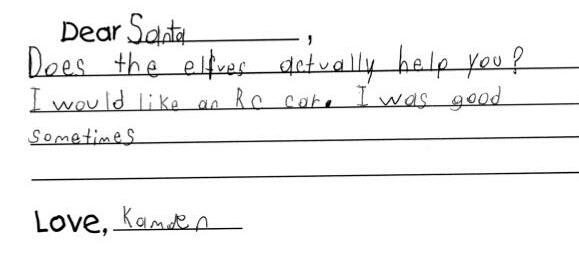 Dear Santa,
Does the elfves actually help you?
I would like an Rc car. I was good
sometimes
Love, Kamden